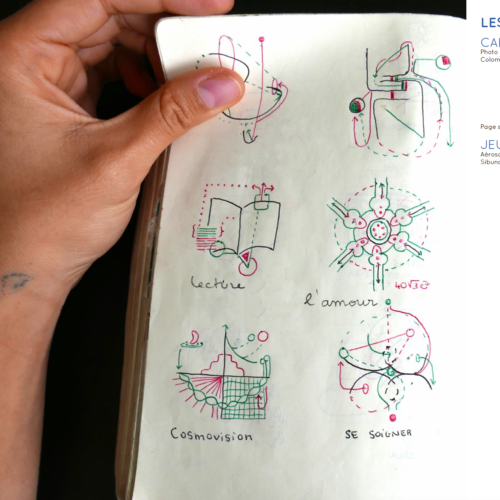 LES
CA
Photo
Colom
Page s
JEU
Aéroso
Sibun
Lecture
l'amour
Cosmovision
SE SOIGNER